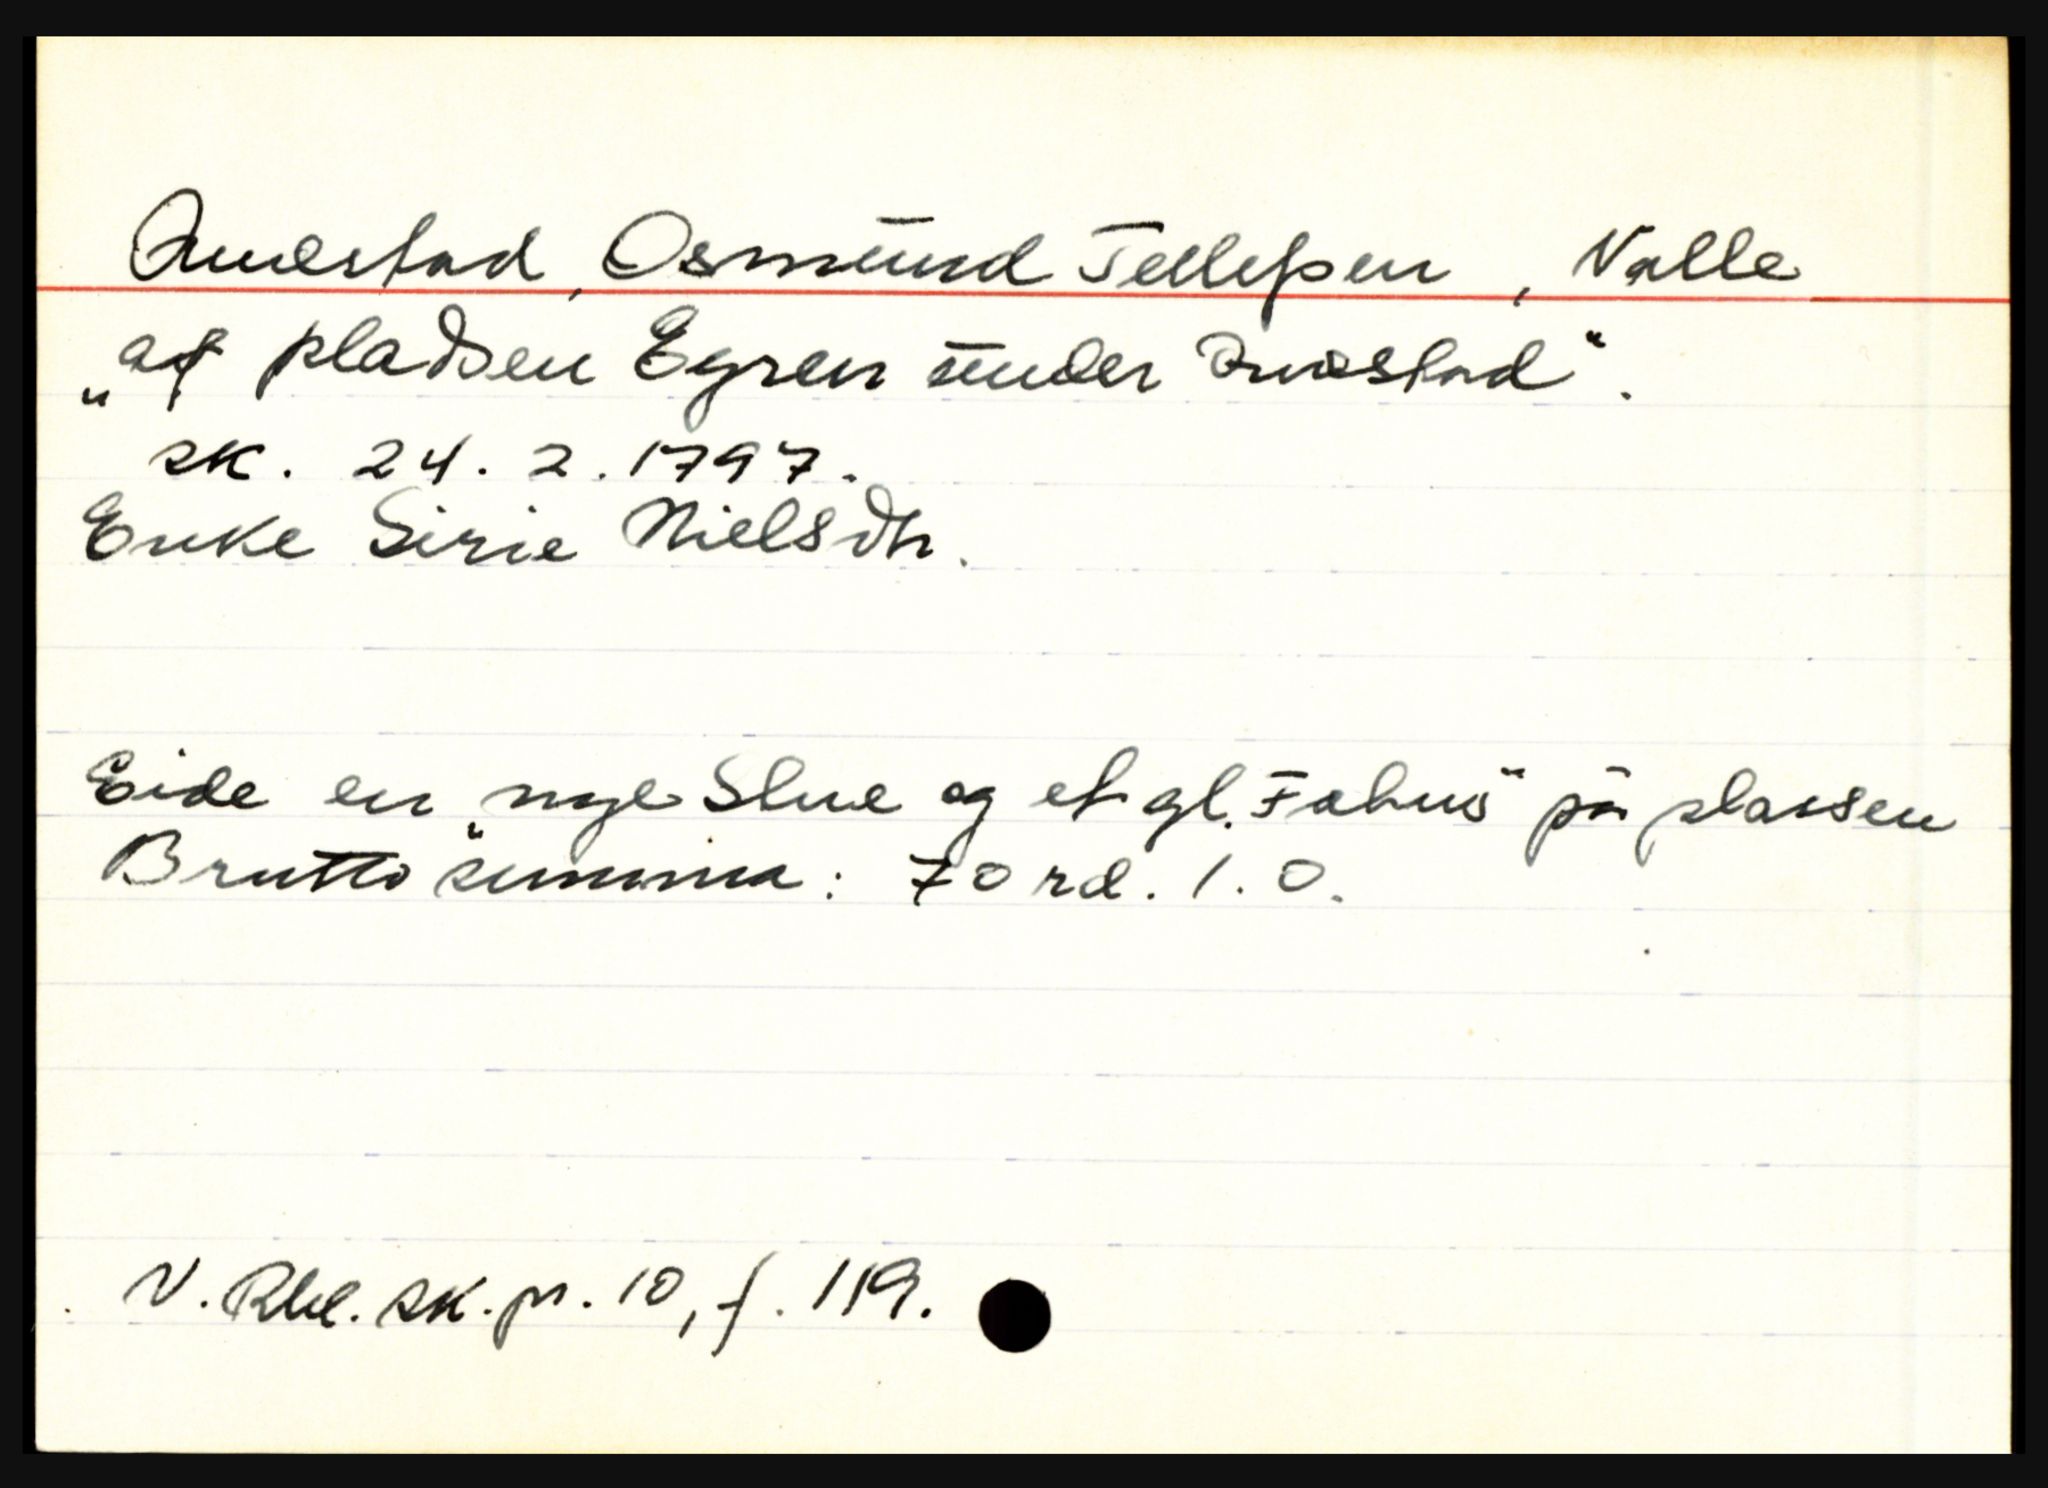 Omestad, Osmund Tellefsen, Valle
"af pladsen Egren under Omestad".
sk. 24.2.1797.
Enke Sirie Nielsdtr.
Eide en "nye Stue og et gl. Fæhus" på plassen
Brutto summa: 70 rd. 1. 0.
V. Rbl. sk. pr. 10, f. 119.